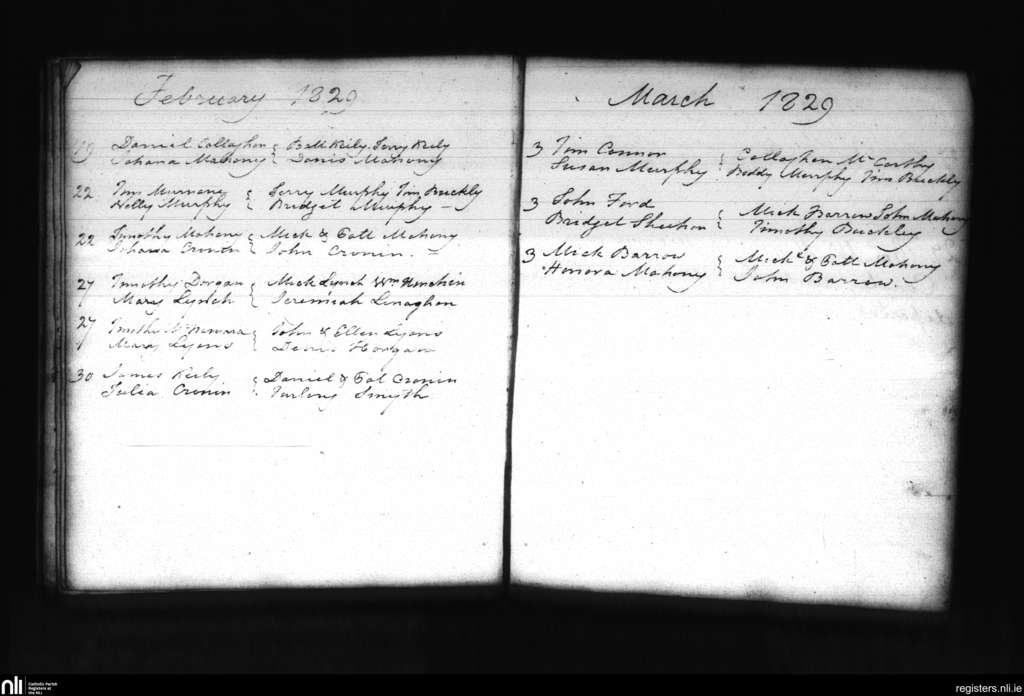 February 1829
19 Daniel Callaghan { Batt Keily. Jerry Keily
Johana Mahony { Denis Mahony
22 Tim Murnane { Jerry Murphy Tim Buckly
Nelly Murphy { Bridget Murphy –
22 Timothy Mahony { Mick & Catt Mahony
Johana Cronin { John Cronin. =
27 Timothy Dorgan { Mick Lynch Wm
Mary Lynch { Jeremiah Linaghan
27 Timothy McNamara { John & Ellen Lyons
Mary Lyons { Denis Horgan
30 James Keily { Daniel & Cat Cronin
Julia Cronin { Smyth
March 1829
3 Tim Connor { Callaghan McCarthy
Susan Murphy { Biddy Murphy Tim Buckly
3 John Ford { Mick Barrow John Mahony
Bridget Sheehan { Timothy Buckley
3 Mick Barrow { Mick & Catt Mahony
Honora Mahony { John Barrow.
nli Catholic Parish
Registers at
the NLI
registers.nli.ie